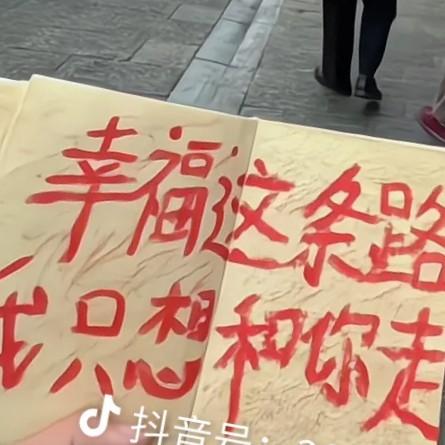 幸福这条路
我只想和你走
抖音号：